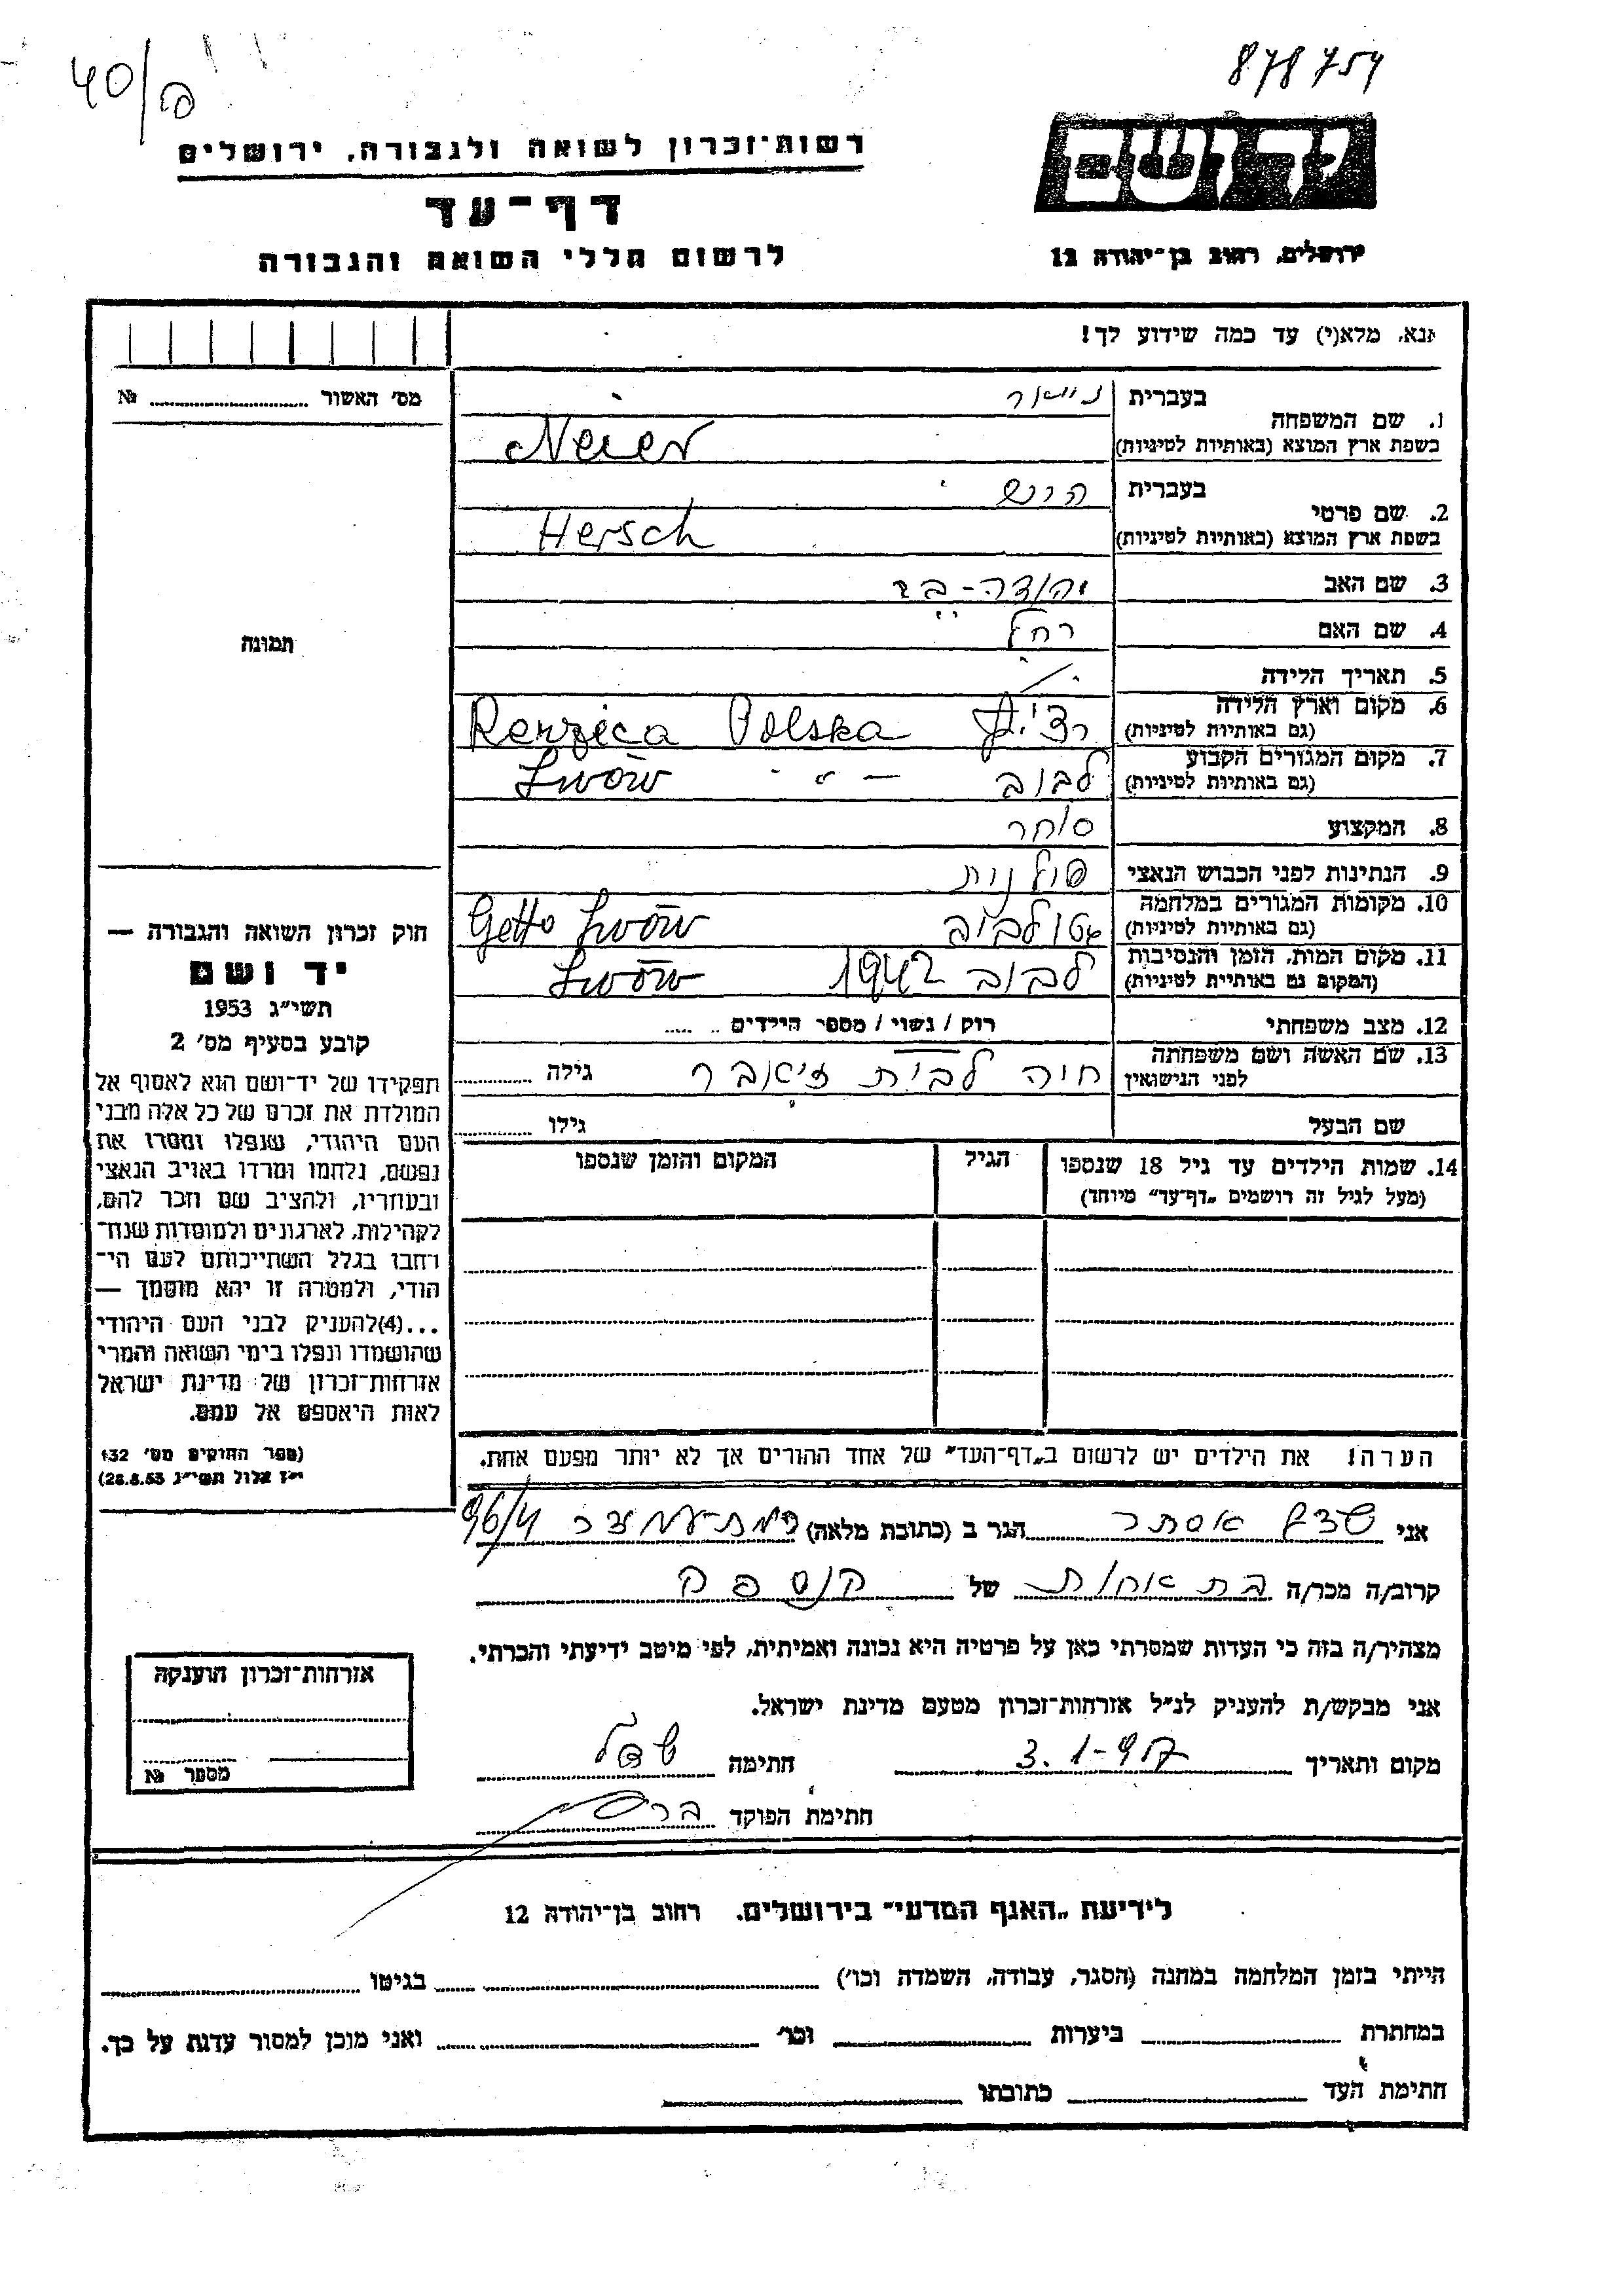 878754
40/ם
יד ושם
ירושלים, רחוב בן־יהודה 12
רשות־זכרון לשואה ולגבורה, ירושלים
דף־עד
לרשום חללי השואה והגבורה
אנא, מלא(י) עד כמה שידוע לך!
מס' האשור № 
1. שם המשפחה
בעברית
בשפת ארץ המוצא (באותיות לטיניות) Neier
2. שם פרטי
בעברית הרש
בשפת ארץ המוצא (באותיות לטיניות) Hersch
3. שם האב יהודה-
4. שם האם רחל
5. תאריך הלידה
6. מקום וארץ הלידה
(גם באותיות לטיניות) Polska
7. מקום המגורים הקבוע
(גם באותיות לטיניות) לבוב — " — Lwów
8. המקצוע סוחר
9. הנתינות לפני הכבוש הנאצי פולנית
10. מקומות המגורים במלחמה
(גם באותיות לטיניות) גטו לבוב Getto Lwów
11. מקום המות, הזמן והנסיבות
(המקום גם באותיות לטיניות) לבוב 1942 Lwów
12. מצב משפחתי רוק / נשוי / מספר הילדים
13. שם האשה ושם משפחתה
לפני הנישואין חיה לבית גילה
שם הבעל גילו
14. שמות הילדים עד גיל 18 שנספו הגיל המקום והזמן שנספו
(מעל לגיל זה רושמים „דף־עד" מיוחד)
תמונה
חוק זכרון השואה והגבורה —
יד ושם
תשי"ג 1953
קובע בסעיף מס' 2
תפקידו של יד־ושם הוא לאסוף אל
המולדת את זכרם של כל אלה מבני
העם היהודי, שנפלו ומסרו את
נפשם, נלחמו ומרדו באויב הנאצי
ובעוזריו, ולהציב שם וזכר להם,
לקהילות, לארגונים ולמוסדות שנח־
רבו בגלל השתייכותם לעם הי־
הודי, ולמטרה זו יהא מוסמך —
...(4)להעניק לבני העם היהודי
שהושמדו ונפלו בימי השואה והמרי
אזרחות־זכרון של מדינת ישראל
לאות היאספם אל עמם.
(ספר החוקים מס' 132
י"ז אלול תשי"ג 28.8.53)
הערה! את הילדים יש לרשום ב„דף־העד" של אחד ההורים אך לא יותר מפעם אחת.
אני אסתר הגר ב (כתובת מלאה) 96/4
קרוב/ה מכר/ה בת אחות של הנספה
מצהיר/ה בזה כי העדות שמסרתי כאן על פרטיה היא נכונה ואמיתית, לפי מיטב ידיעתי והכרתי.
אני מבקש/ת להעניק לנ"ל אזרחות־זכרון מטעם מדינת ישראל.
מקום ותאריך 3.1-957 חתימה
חתימת הפוקד
אזרחות־זכרון הוענקה
מספר №
לידיעת „האגף המדעי" בירושלים. רחוב בן־יהודה 12
הייתי בזמן המלחמה במחנה (הסגר, עבודה, השמדה וכו') בגיטו
במחתרת ביערות וכו' ואני מוכן למסור עדות על כך.
חתימת העד כתובתו